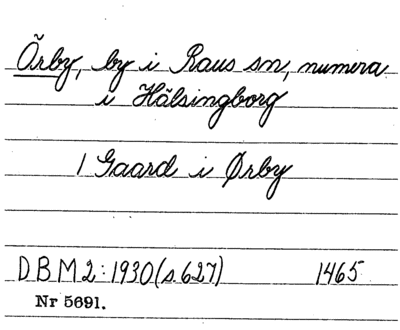 Örby, by i Raus sn, numera
i Hälsingborg
1 Gaard i Ørby
DBM2:1930(s.627) 1465
Nr 5691.